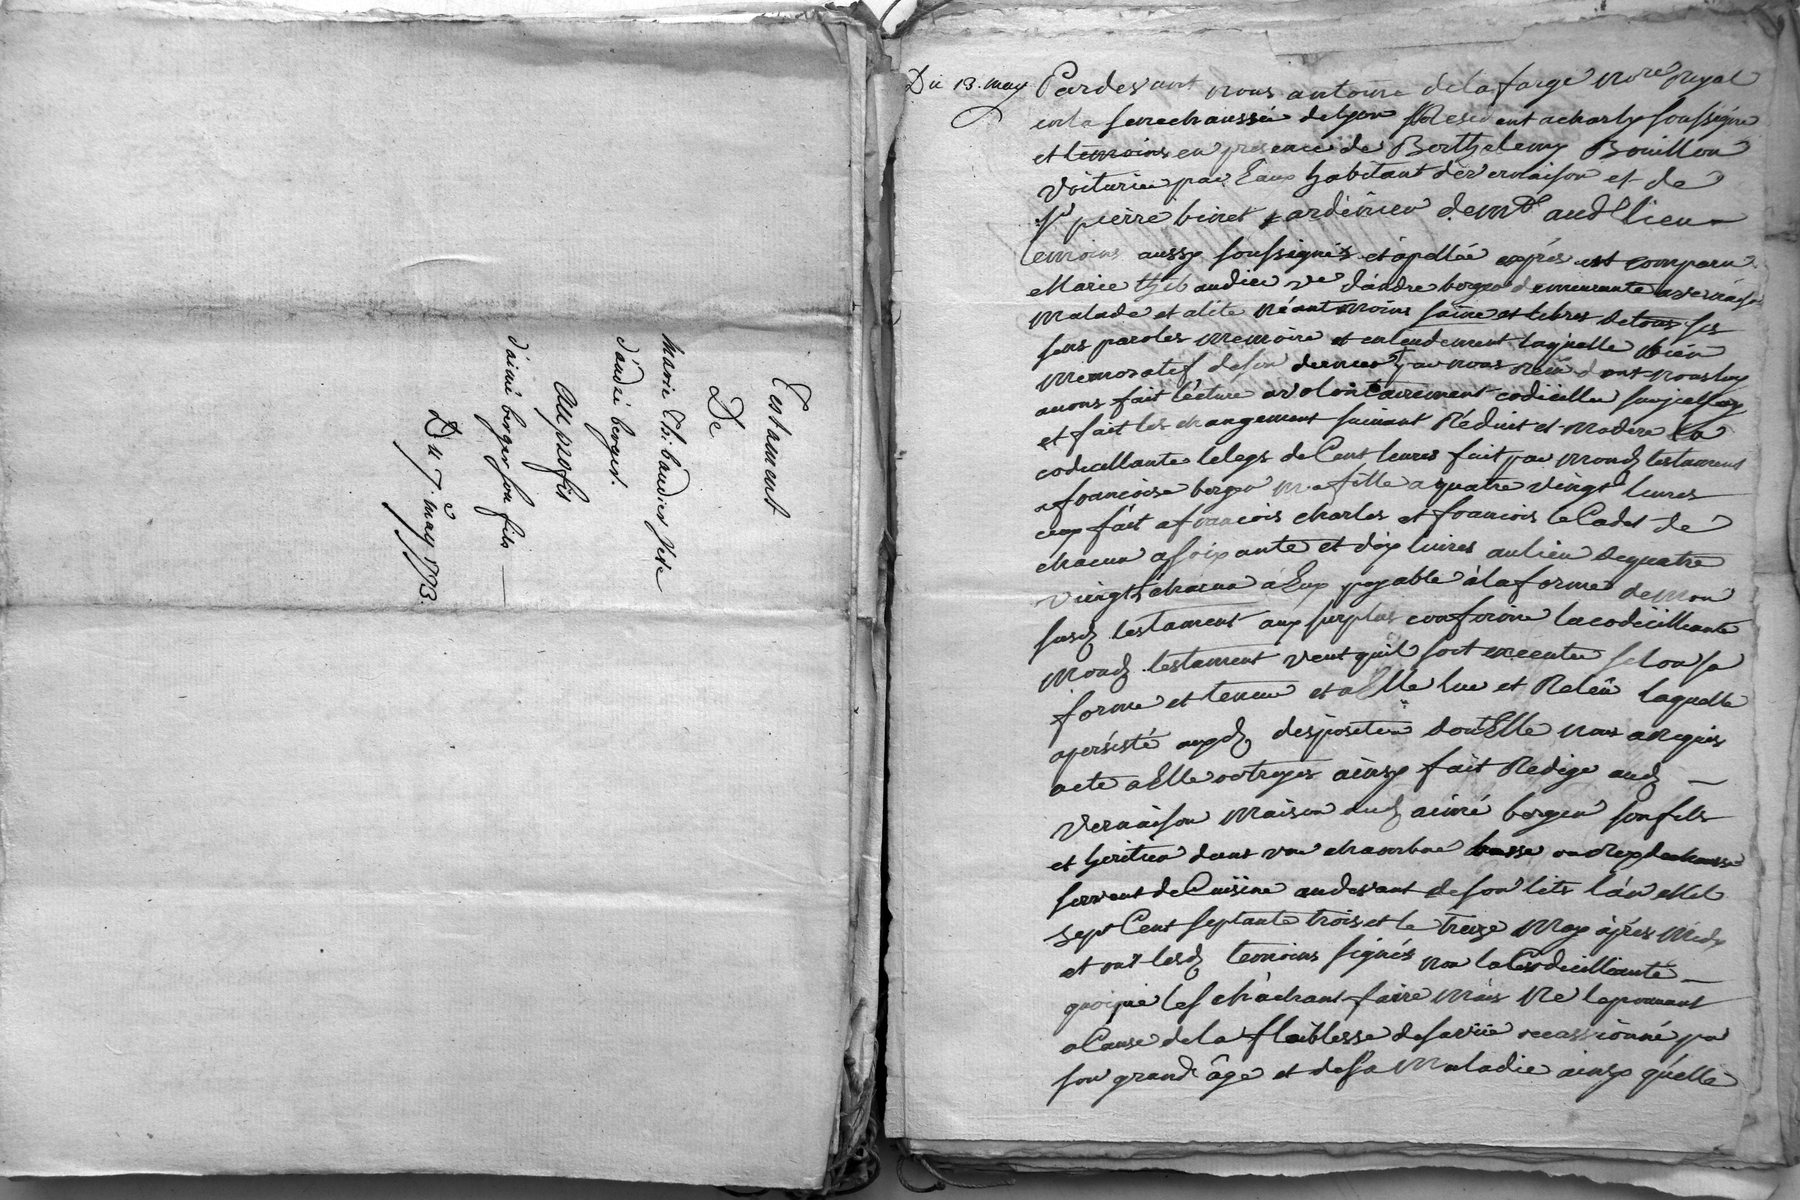 Testament
De
Marie Thibaudier veve
d'andré berger.
Au profis
d'aimé berger son fils —
Du 7e may 1773.
Du 13. may
Pardevant nous antoine delafarge nore royal
en la senechaussée de lyon Résident a charly soussigné
et temoins en presence de Berthelemy Bouillon
voiturier par Eaux habitant de vernaison et de
sr pierre binet jardinier demt audt lieu
temoins aussy soussignés et apellée exprés est comparu
Marie thibaudier ve d'andre berger demeurante a vernaison
Malade et alité Néantmoins saine et libres de tous ses
sens paroles memoire et entendement laquelle bien
memoratif de son dernier par nous Reçu dont nous luy
avons fait lecture a volontairement codicillé sur jcelluy
et fait les changement suivant Réduit et Modere la
codicillante le legs de Cent livres fait par mond testament
a françoise berger ma fille a quatre vingt livres
ceux fait a francois charles et francois le Cadet de
chacun a soixante et dix livres au lieu de quatre
vingts chacun a Eux payable a la forme de mon
susd testament aux surplus confirme la codicillante
mond testament veut quil soit executer selon sa
forme et teneur et a Elle lue et Releüe laquelle
a persisté auxd disposition dont Elle nous a Requis
acte a Elle octroyes ainsy fait Redigé aud —
vernaison maison dud aimé berger son fils
et heritier dans une chambre basse ou Rez de chausse
servent de Cuisine au devant de son lits l'an Mil
sept Cent septante trois et le treize May aprés Midy
et ont lesd temoins signés non la Codicilliante —
quoique les chachant faire mais Ne le pouvant
a Cause de la flaiblesse de sa vüe occassionné par
son grand âge et de sa Maladie ainsy qu'elle